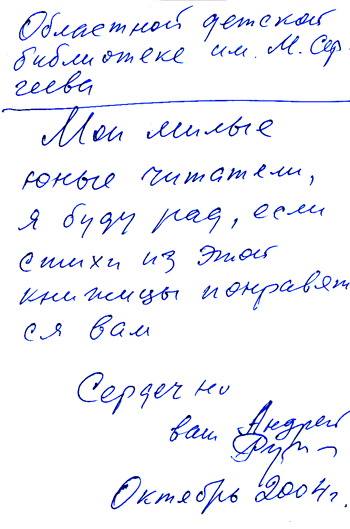 Областной детской
библиотеке им. М. Сер-
геева
Мои милые
юные читатели,
я буду рад, если
стихи из этой
книжицы понравят
ся вам
Сердечно
ваш Андрей
Октябрь 2004 г.